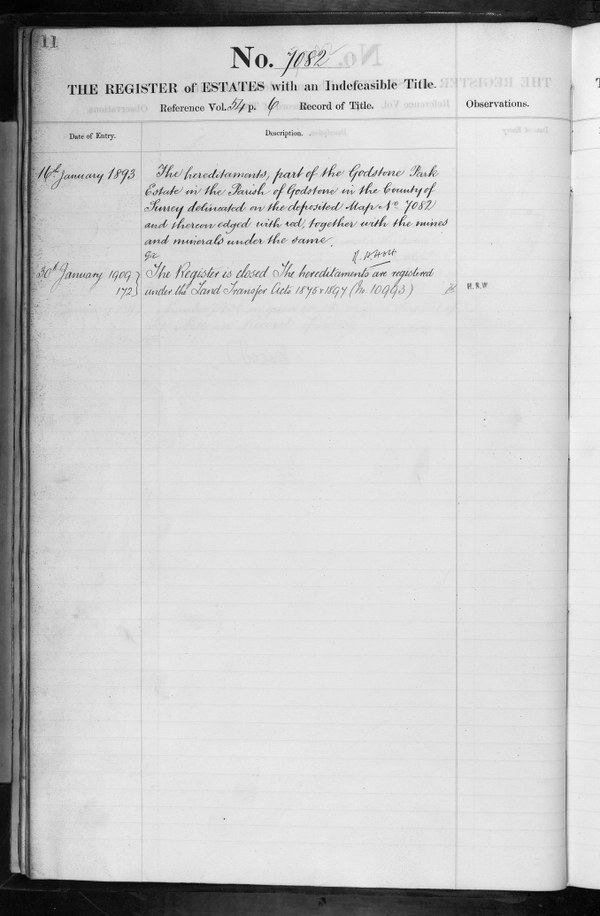 11
No. 7082
THE REGISTER of ESTATES with an Indefeasible Title.
Reference Vol. 54 p. 6 Record of Title.
Observations.
Date of Entry.
Description.
16th January 1893
The hereditaments, part of the Godstone Park
Estate in the Parish of Godstone in the County of
Surrey delineated on the deposited Map No 7082
and thereon edged with red, together with the mines
and minerals under the same.
R. W. Holt
30th January 1909
172
The Register is closed The hereditaments are registered
under the Land Transfer Acts 1875 & 1897 (No 10993)
H. S. W